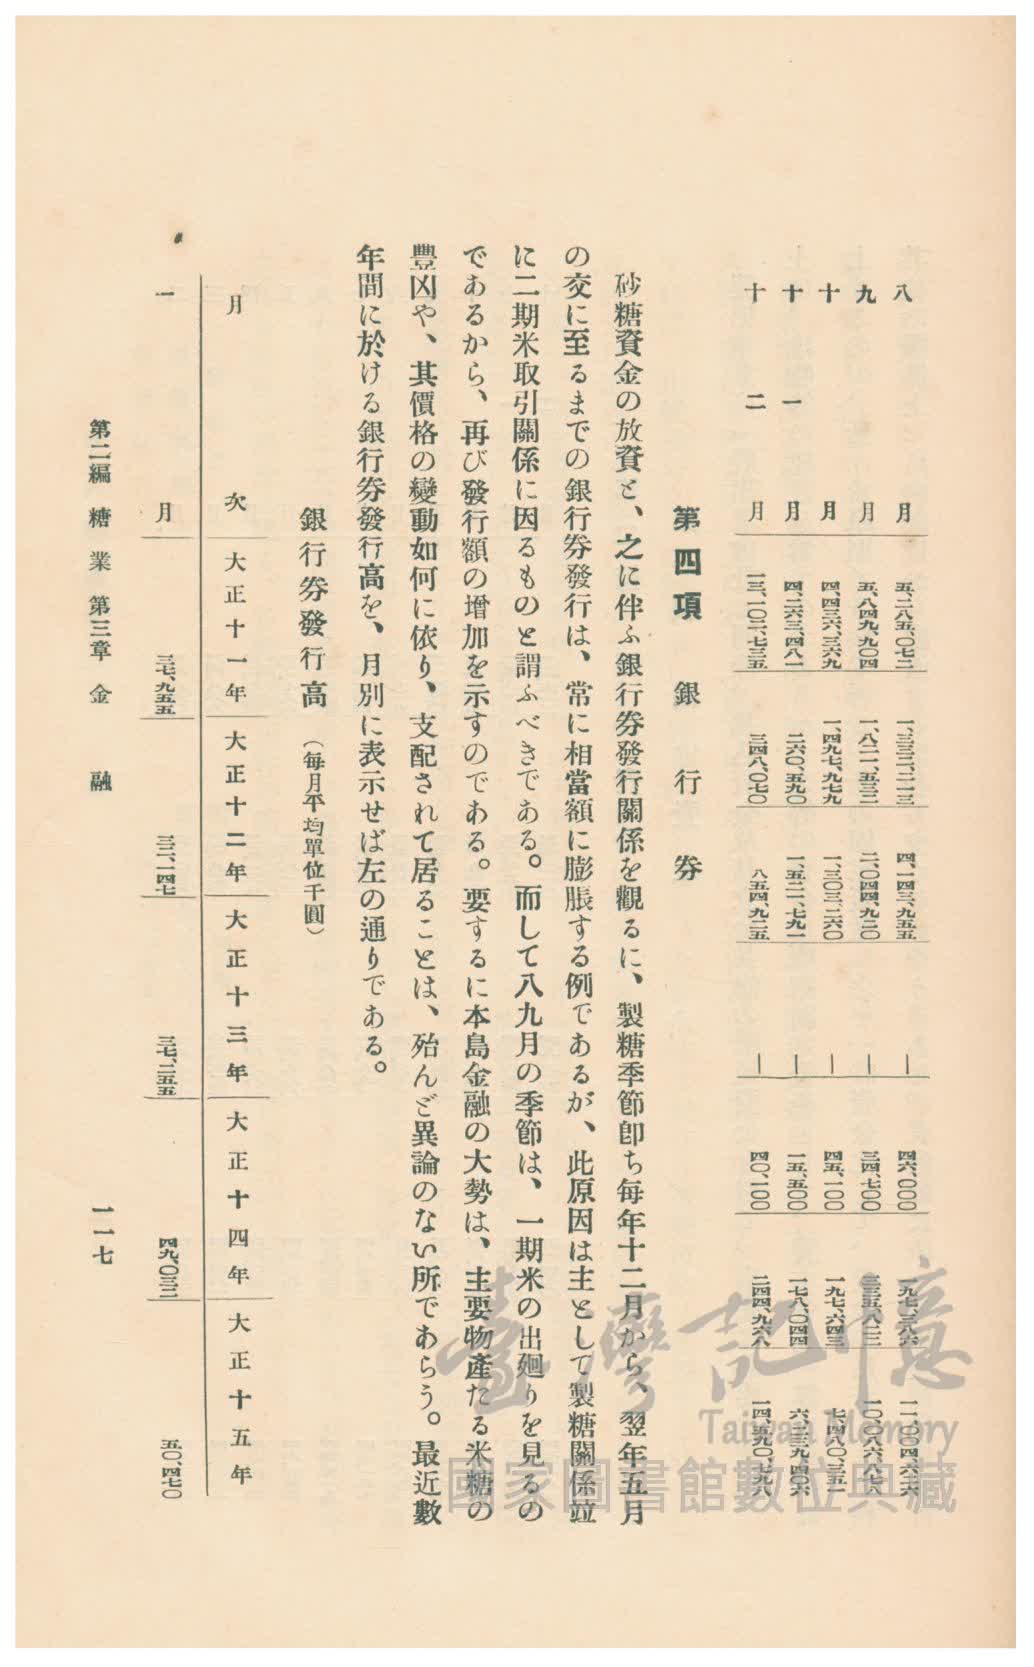 八月 五、二八五、〇七二 一、三三三、二一三 四、一四三、九五五 ― 四六、〇〇〇 一九七、三八六 一一、〇〇四、六二六
九月 五、八四九、九〇四 一、八二一、五三二 二、〇四四、九二〇 ― 三四、七〇〇 二三五、八二三 一〇、〇八六、八七八
十月 四、四三六、三六九 一、四九七、九七九 一、三〇三、二六〇 ― 四五、一〇〇 一九七、六四三 七、四八〇、三五一
十一月 四、二六三、四八一 二六〇、五九〇 一、五二一、七九一 ― 一五、五〇〇 一七八、〇四四 六、二三九、四〇六
十二月 一三、一〇二、七三五 三四八、〇七〇 八五四、九二五 ― 四〇、一〇〇 二四四、九六八 一四、五九〇、七九八
第四項 銀行券
砂糖資金の放資と、之に伴ふ銀行券發行關係を觀るに、製糖季節卽ち每年十二月から、翌年五月
の交に至るまでの銀行券發行は、常に相當額に膨脹する例であるが、此原因は主として製糖關係竝
に二期米取引關係に因るものと謂ふべきである。而して八九月の季節は、一期米の出廻りを見るの
であるから、再び發行額の增加を示すのである。要するに本島金融の大勢は、主要物產たる米糖の
豐凶や、其價格の變動如何に依り、支配されて居ることは、殆んど異論のない所であらう。最近數
年間に於ける銀行券發行高を、月別に表示せば左の通りである。
銀行券發行高 (每月平均單位千圓)
月次 大正十一年 大正十二年 大正十三年 大正十四年 大正十五年
一月 三七、九五五 三二、一四七 三七、二五五 四九、〇三二 五〇、四七〇
第二編 糖業 第三章 金融 一一七
臺灣記憶
Taiwan Memory
國家圖書館數位典藏